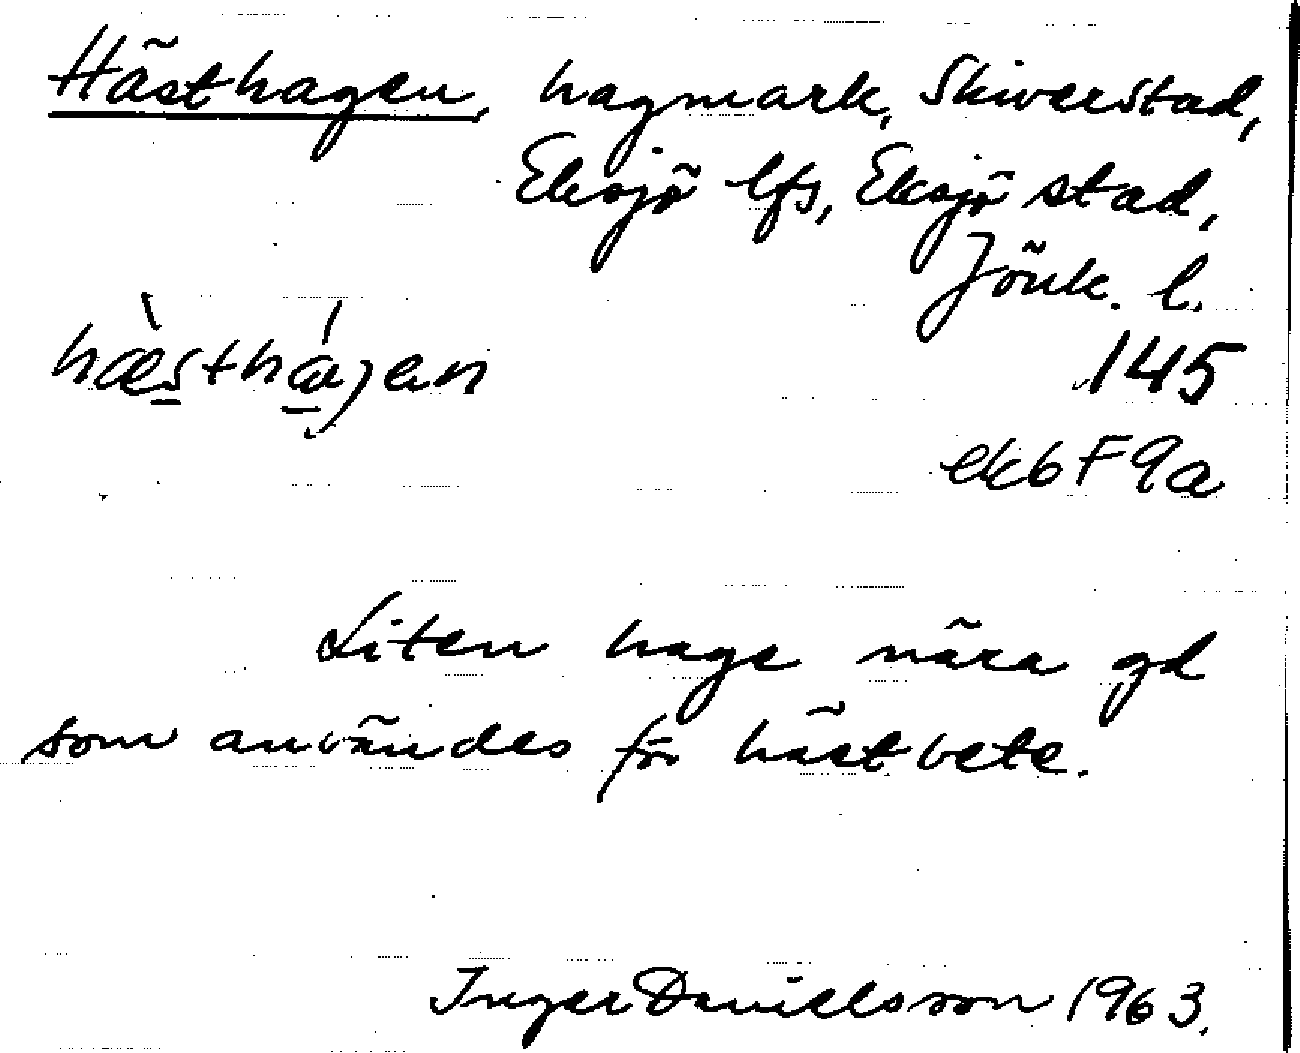 Hästhagen, hagmark, Skiverstad,
Eksjö lfs, Eksjö stad,
Jönk. l.
hæ̀sthágen
145
ek6F9a
Liten hage nära gd
som användes för hästbete.
Inger Danielsson 1963.